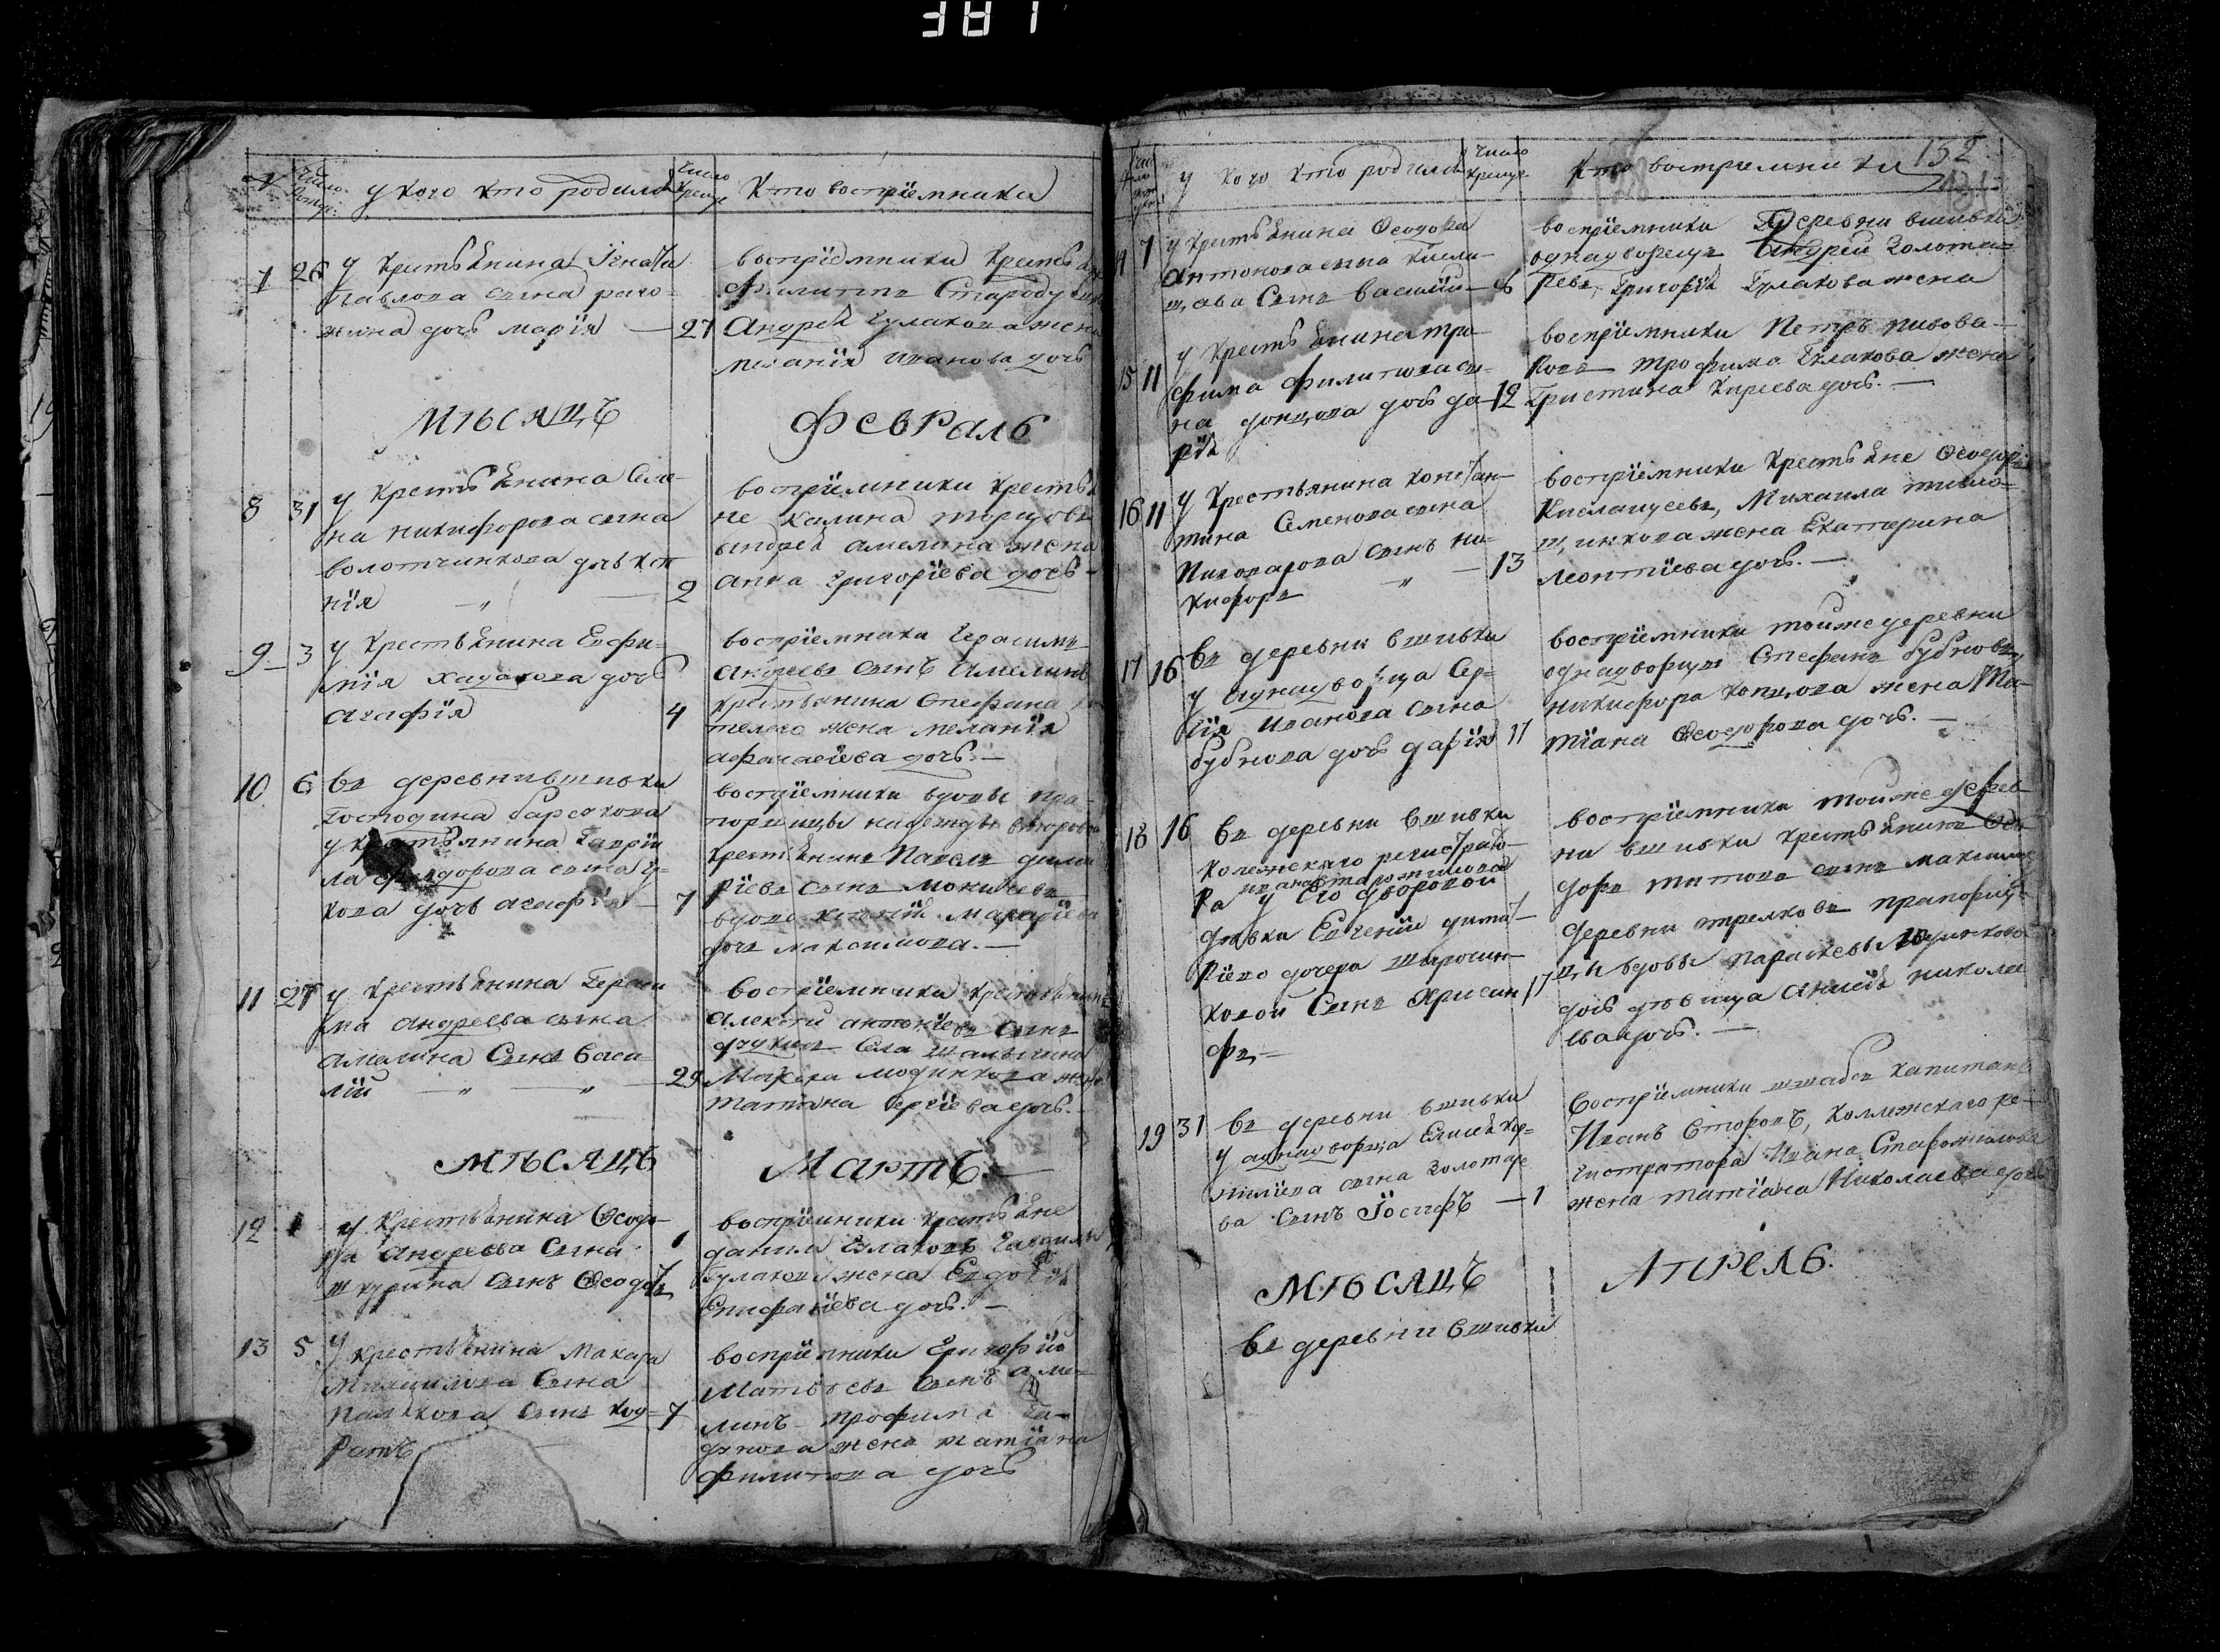 181
№
Число рожд:
у кого кто родился
Число крещ:
Кто воспрїемники
7 26 У Крестьянина Игнатїя
Павлова сына рого-
жина дочь марїя — 27
воспрїемники Крестьяне
Филиппъ Стародубцовъ
Андрея Гулакова жена
меланїя Иванова дочь
МѢСЯЦЪ
ФевРаль
8 31 У Крестьянина Семе-
на никифорова сына
волотчинкова дочь ксе
нїя „ — 2
воспрїемники крестья
не калина торцовъ
андрея амелина жена
анна григорїева дочь —
9 3 У Крестьянина Евфи-
мїя хадакова дочь
Агафїя 4
воспрїемники Герасимъ
Андреевъ сынъ Амелинъ
Крестьянина Стефана
телего жена меланїя
афанасїева дочь. —
10 6 въ деревни вшивки
Господина барсокова
у крестьянина Гаврїи
ла феодорова сына
кова дочь агафїя — 7
воспрїемники вдовы пра-
порщицы надежды второвой
крестьянинъ Павелъ
рїевъ сынъ
вдова Макарїева
дочь максимова. —
11 27 У Крестьянина Гераси
ма андреева сына
амелина Сынъ Васи-
лїй „ „ — 29
воспрїемники крестьянинъ
Алексѣй антонїевъ сынъ
села шалыгина
Макара модинкова жена
татїана сергїева дочь. —
МѢСЯЦЪ
Мартъ. —
12 1 У Крестьянина Феодо-
ра андреева Сына
шкурина сынъ Феодотъ 1
воспрїемники крестьяне
данила Гулаковъ гаврила
Гулакова жена Евдокїя
Епифанїева дочь. —
13 5 У крестьянина Макара
Михаилова Сына
Палькова Сынъ код-
ратъ 7
воспрїемники Григорїй
Матвѣевъ Сынъ аме-
линъ трофима Га-
дунова жена татїана
филипова дочь
у кого кто родился
Число крещ:
Кто воспрїемники
132
131
14 7 у крестьянина Феодора
Антонова сына Кисли-
щава Сынъ Василїй — 8
воспрїемники Деревни вшивки
однодворецъ Андрей Золота-
ревъ, Григорїя Гулакова жена
15 11 у Крестьянина тро-
фима филипова сы-
на донцова дочь да- 12
рїя
воспрїемники Петръ пивова-
ровъ трофима Гулакова жена
Христина Кирѣева дочь. —
16 11 у Крестьянина констан-
тина Семенова сына
Пивоварова сынъ ни- — 13
кифоръ „
воспрїемники Крестьяне Феодоръ
Кислащеевъ, Михаила
инкова жена Екатерина
Леонтїева дочь. —
17 16 въ деревни вшивки
у аднадворца Сер-
гїя Иванова сына
бубнова дочь дарїя 17
воспрїемники тойже деревни
однодворцы Стефанъ бубновъ,
никифора Копцова жена Та-
тїана Феодорова дочь. —
18 16 Въ деревни вшивки
Колежскаго регистрато-
ивана старожилова
Ра у его дворовой
дѣвки Евгенїи димит-
рїево дочери
ковой Сынъ Хрисан 17
фъ, —
воспрїемники тойже дерев-
ни вшивки крестьянинъ Фео-
доръ титовъ сынъ максимовъ
деревни стрелковъ прапорщи-
цы вдовы параскевы
дочь дѣвица Анисїя николае
ва дочь. —
19 31 Въ деревни вшивки
у аднадворца Елисѣя
милїева сына Золотаре
ва Сынъ Іосифъ — 1
Воспрїемники штабсъ капитанъ
Иванъ Второвъ, Коллежскаго ре-
гистратора Ивана Старожилова
жена татїана Николаева дочь
МѢСЯЦЪ
Апрель.
Въ деревни Вшивки